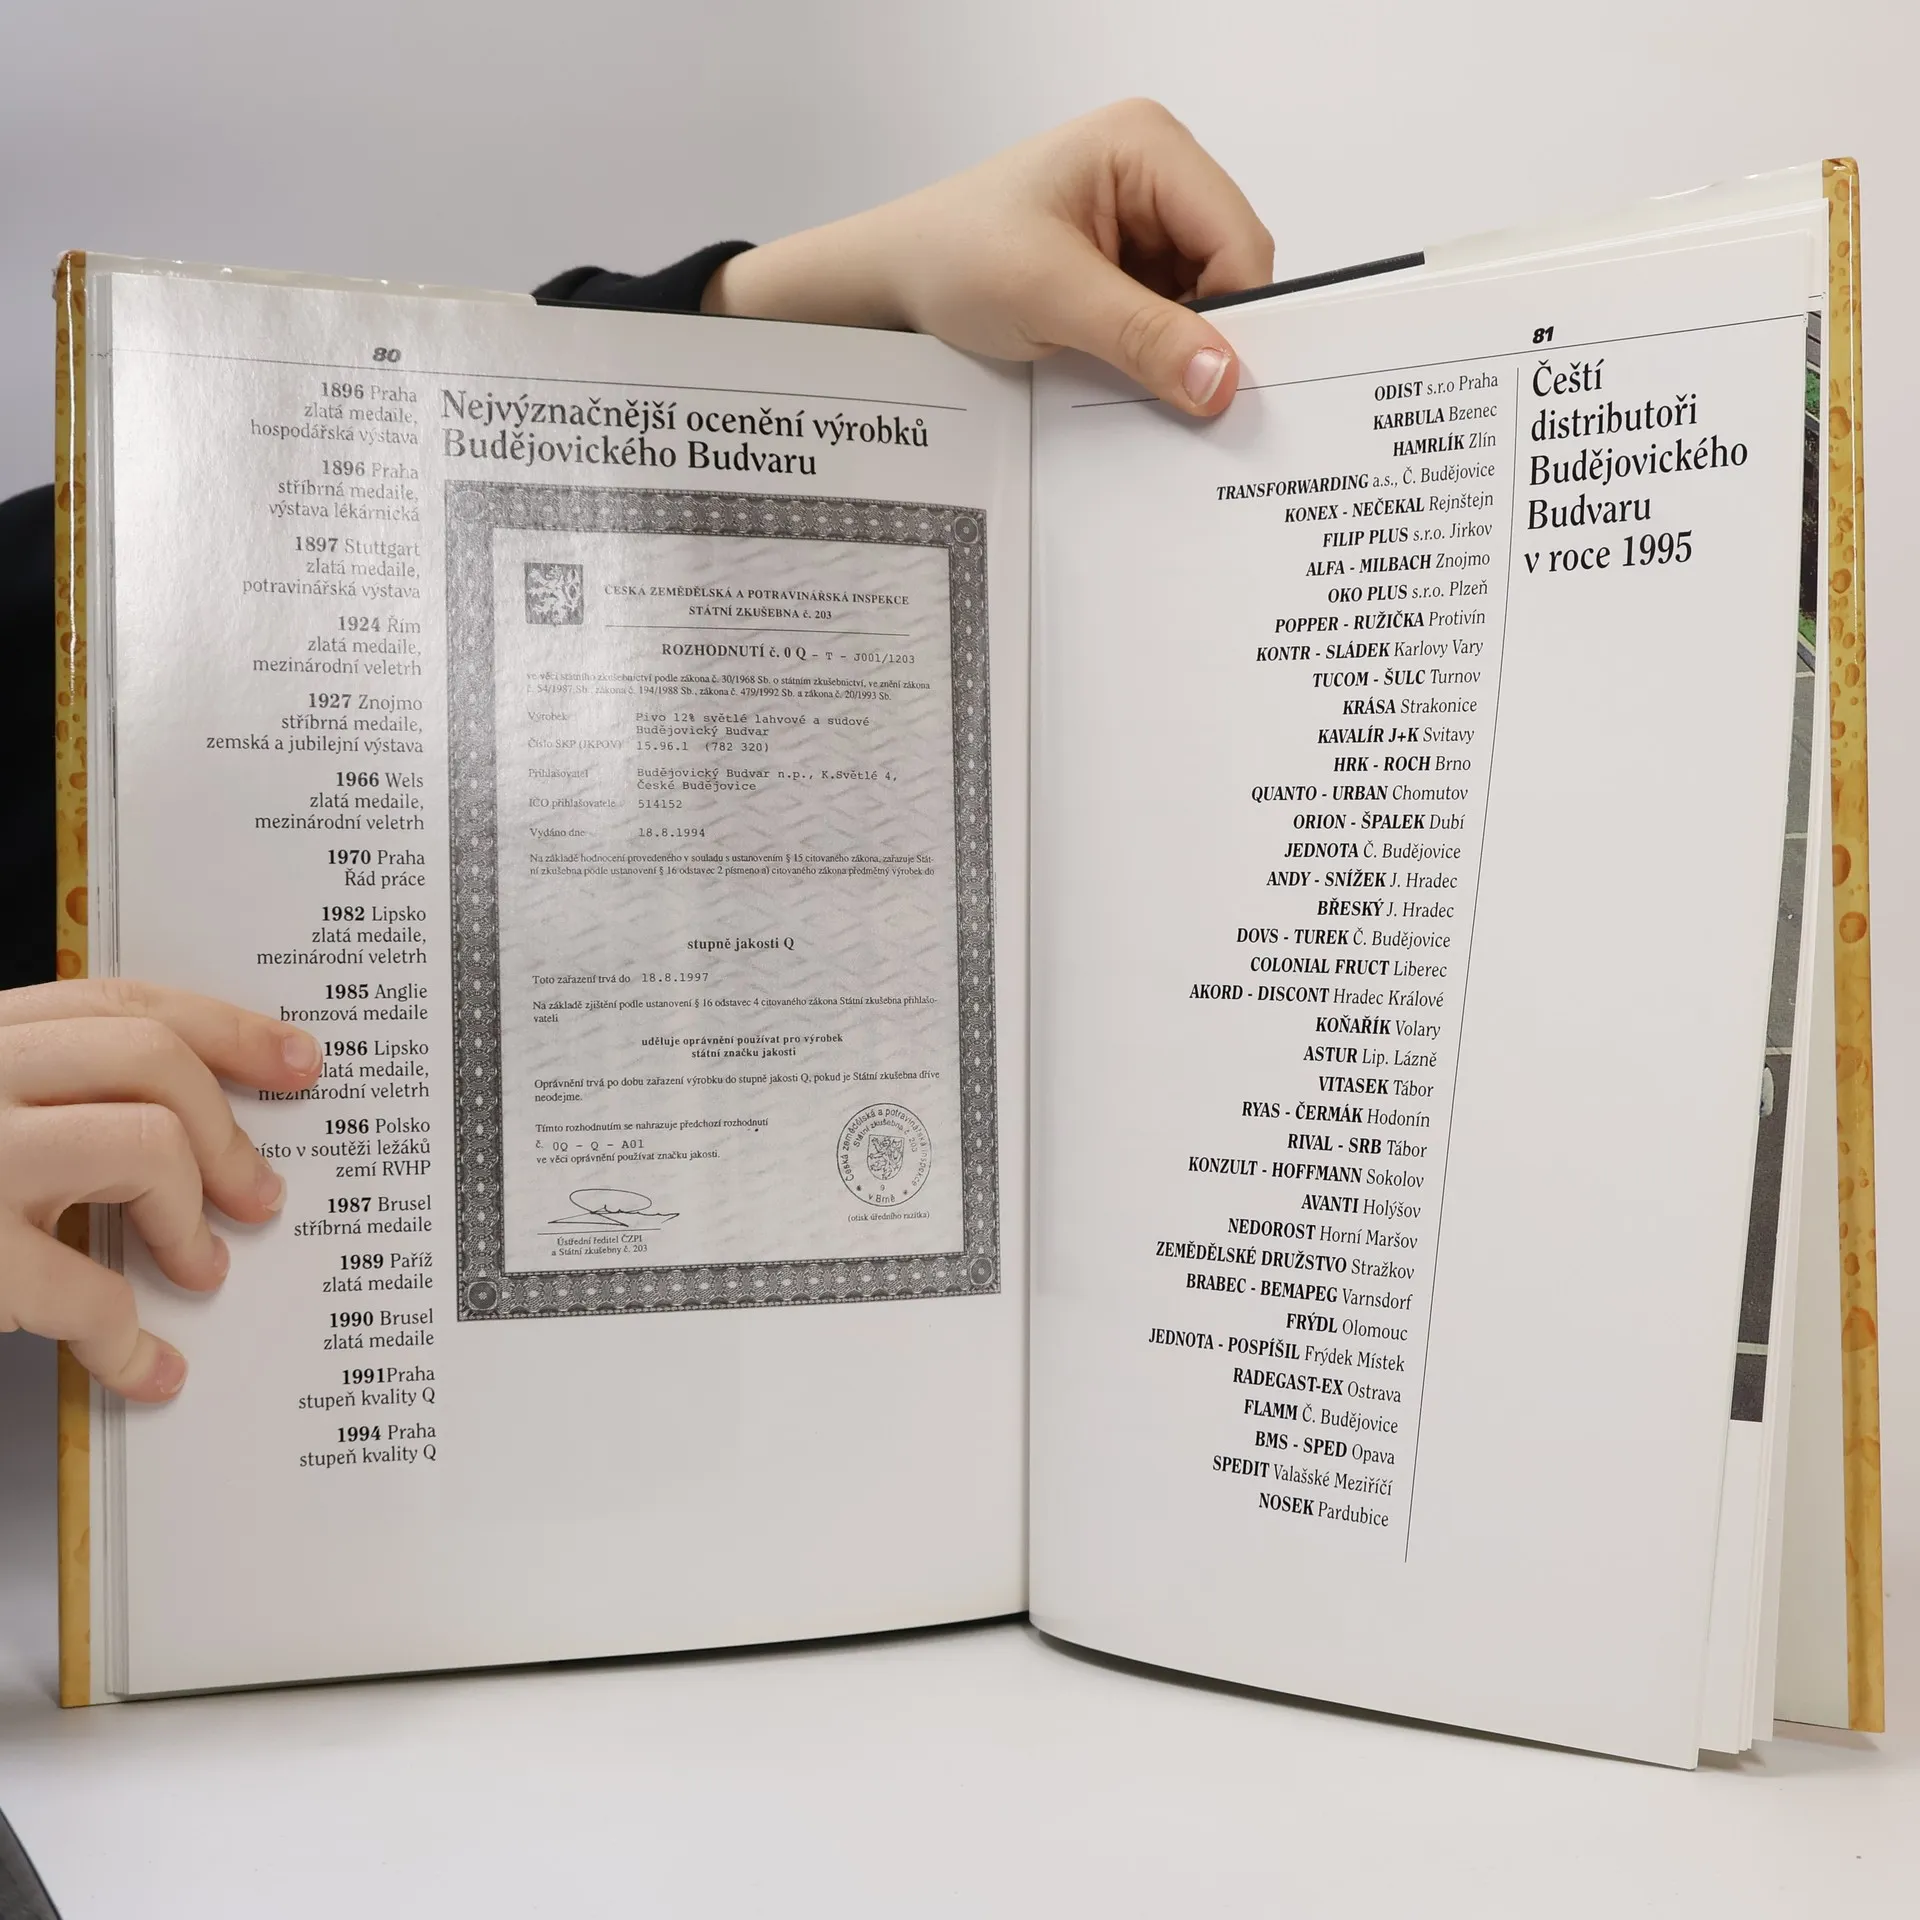 80
1896 Praha
zlatá medaile,
hospodářská výstava
1896 Praha
stříbrná medaile,
výstava lékárnická
1897 Stuttgart
zlatá medaile,
potravinářská výstava
1924 Řím
zlatá medaile,
mezinárodní veletrh
1927 Znojmo
stříbrná medaile,
zemská a jubilejní výstava
1966 Wels
zlatá medaile,
mezinárodní veletrh
1970 Praha
Řád práce
1982 Lipsko
zlatá medaile,
mezinárodní veletrh
1985 Anglie
bronzová medaile
1986 Lipsko
latá medaile,
mezinárodní veletrh
1986 Polsko
ísto v soutěži ležáků
zemí RVHP
1987 Brusel
stříbrná medaile
1989 Paříž
zlatá medaile
1990 Brusel
zlatá medaile
1991Praha
stupeň kvality Q
1994 Praha
stupeň kvality Q
Nejvýznačnější ocenění výrobků
Budějovického Budvaru
ČESKÁ ZEMĚDĚLSKÁ A POTRAVINÁŘSKÁ INSPEKCE
STÁTNÍ ZKUŠEBNA č. 203
ROZHODNUTÍ č. 0 Q - T - J001/1203
ve věci státního zkušebnictví podle zákona č. 30/1968 Sb. o státním zkušebnictví, ve znění zákona
č. 54/1987 Sb., zákona č. 194/1988 Sb., zákona č. 479/1992 Sb. a zákona č. 20/1993 Sb.
Výrobek Pivo 12% světlé lahvové a sudové
Budějovický Budvar
Číslo SKP (JKPOV) 15.96.1 (782 320)
Přihlašovatel Budějovický Budvar n.p., K.Světlé 4,
České Budějovice
IČO přihlašovatele 514152
Vydáno dne 18.8.1994
Na základě hodnocení provedeného v souladu s ustanovením § 15 citovaného zákona, zařazuje Stát-
ní zkušebna podle ustanovení § 16 odstavec 2 písmeno a) citovaného zákona předmětný výrobek do
stupně jakosti Q
Toto zařazení trvá do 18.8.1997
Na základě zjištění podle ustanovení § 16 odstavec 4 citovaného zákona Státní zkušebna přihlašo-
vateli
uděluje oprávnění používat pro výrobek
státní značku jakosti
Oprávnění trvá po dobu zařazení výrobku do stupně jakosti Q, pokud je Státní zkušebna dříve
neodejme.
Tímto rozhodnutím se nahrazuje předchozí rozhodnutí
č. 0Q - Q - A01
ve věci oprávnění používat značku jakosti.
Ústřední ředitel ČZPI
a Státní zkušebny č. 203
Česká zemědělská a potravinářská inspekce
Státní zkušebna č. 203
9
v Brně
(otisk úředního razítka)
81
ODIST s.r.o Praha
KARBULA Bzenec
HAMRLÍK Zlín
TRANSFORWARDING a.s., Č. Budějovice
KONEX - NEČEKAL Rejnštejn
FILIP PLUS s.r.o. Jirkov
ALFA - MILBACH Znojmo
OKO PLUS s.r.o. Plzeň
POPPER - RUŽIČKA Protivín
KONTR - SLÁDEK Karlovy Vary
TUCOM - ŠULC Turnov
KRÁSA Strakonice
KAVALÍR J+K Svitavy
HRK - ROCH Brno
QUANTO - URBAN Chomutov
ORION - ŠPALEK Dubí
JEDNOTA Č. Budějovice
ANDY - SNÍŽEK J. Hradec
BŘESKÝ J. Hradec
DOVS - TUREK Č. Budějovice
COLONIAL FRUCT Liberec
AKORD - DISCONT Hradec Králové
KOŇAŘÍK Volary
ASTUR Lip. Lázně
VITASEK Tábor
RYAS - ČERMÁK Hodonín
RIVAL - SRB Tábor
KONZULT - HOFFMANN Sokolov
AVANTI Holýšov
NEDOROST Horní Maršov
ZEMĚDĚLSKÉ DRUŽSTVO Stražkov
BRABEC - BEMAPEG Varnsdorf
FRÝDL Olomouc
JEDNOTA - POSPÍŠIL Frýdek Místek
RADEGAST-EX Ostrava
FLAMM Č. Budějovice
BMS - SPED Opava
SPEDIT Valašské Meziříčí
NOSEK Pardubice
Čeští
distributoři
Budějovického
Budvaru
v roce 1995